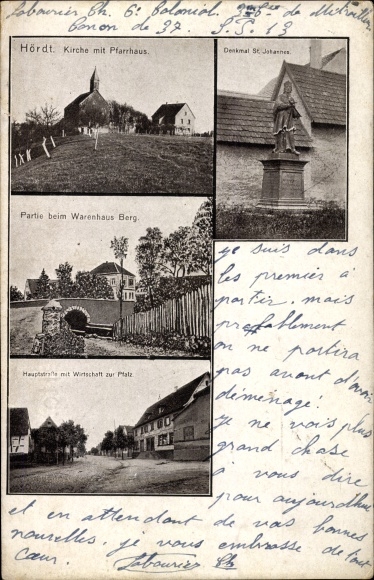 Labourier Ch. 6e Colonial
Canon de 37. S.P. 13
Hördt. Kirche mit Pfarrhaus.
Denkmal St. Johannes.
Partie beim Warenhaus Berg.
Hauptstraße mit Wirtschaft zur Pfalz.
je suis dans
les premier à
partir. mais
probablement
on ne partira
pas avant d'avoir
déménagé!
je ne vois plus
grand chose
à vous dire
pour aujourd'hui
et en attendant de vos bonnes
nouvelles. je vous embrasse de tout
cœur. Labourier Ch